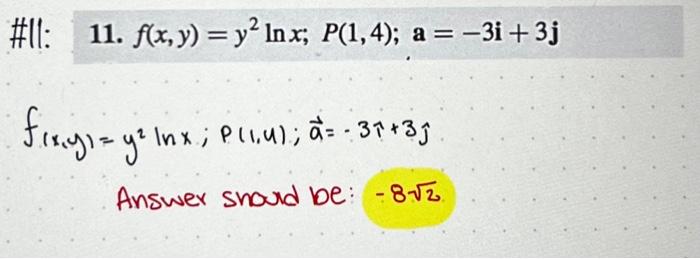 #11: 11. f(x, y) = y² ln x; P(1, 4); a = −3i + 3j
f(x,y) = y² ln x ; P(1,4) ; a⃗ = - 3î + 3ĵ
Answer should be: -8√2